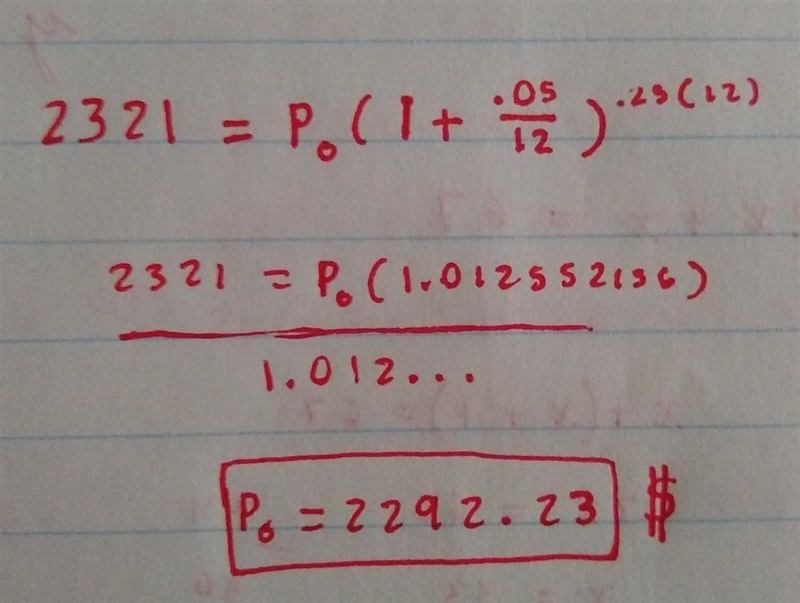 2321 = P₀ ( 1 + .05/12 ) ^ .25(12)
2321 = P₀ (1.012552156)
1.012...
P₀ = 2292.23 $